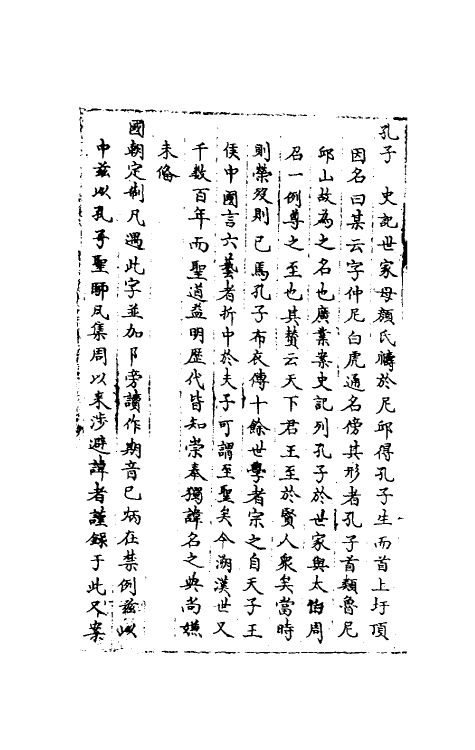 孔子　史記世家母顏氏禱於尼邱得孔子生而首上圩頂
因名曰某云字仲尼白虎通名傍其形者孔子首類魯尼
邱山故為之名也廣業案史記列孔子於世家與太伯周
召一例尊之至也其贊云天下君王至於賢人衆矣當時
則榮沒則已焉孔子布衣傳十餘世學者宗之自天子王
侯中國言六藝者折中於夫子可謂至聖矣今溯漢世又
千數百年而聖道益明歷代皆知崇奉獨諱名之典尚嫌
未俻
國朝定制凡遇此字並加阝旁讀作期音已炳在禁例茲以
中茲以孔子聖師凡集周以來涉避諱者謹錄于此又案